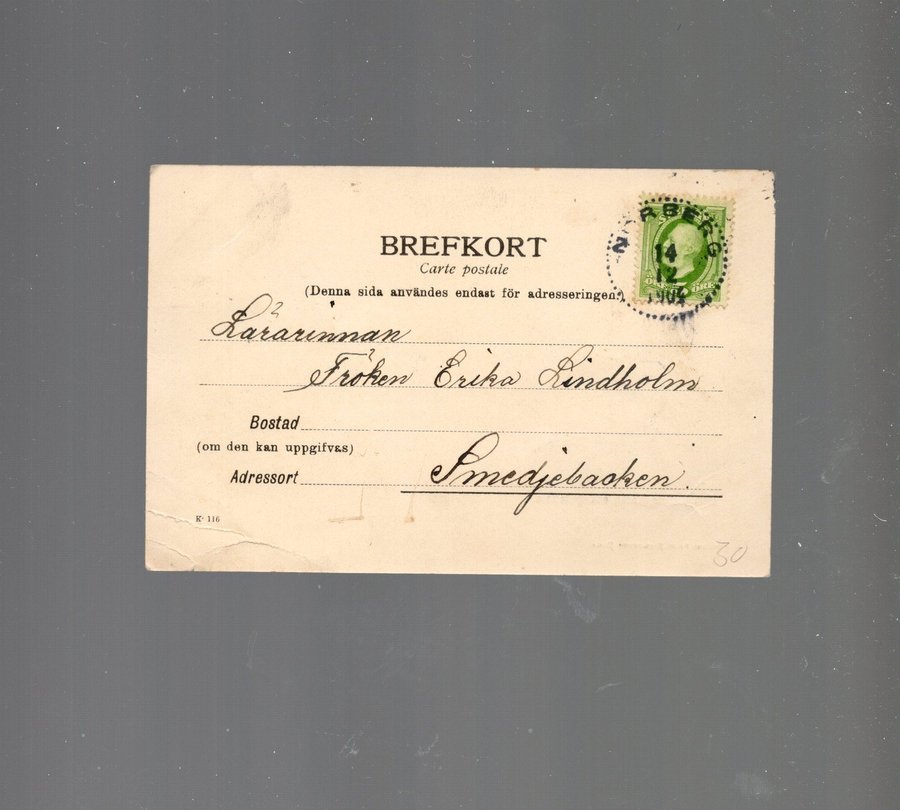 BREFKORT
Carte postale
(Denna sida användes endast för adresseringen.
NORBERG
14
12
ÖRE ÖRE
Lärarinnan
Fröken Erika Lindholm
Bostad
(om den kan uppgifvas)
Adressort Smedjebacken.
K: 116
30